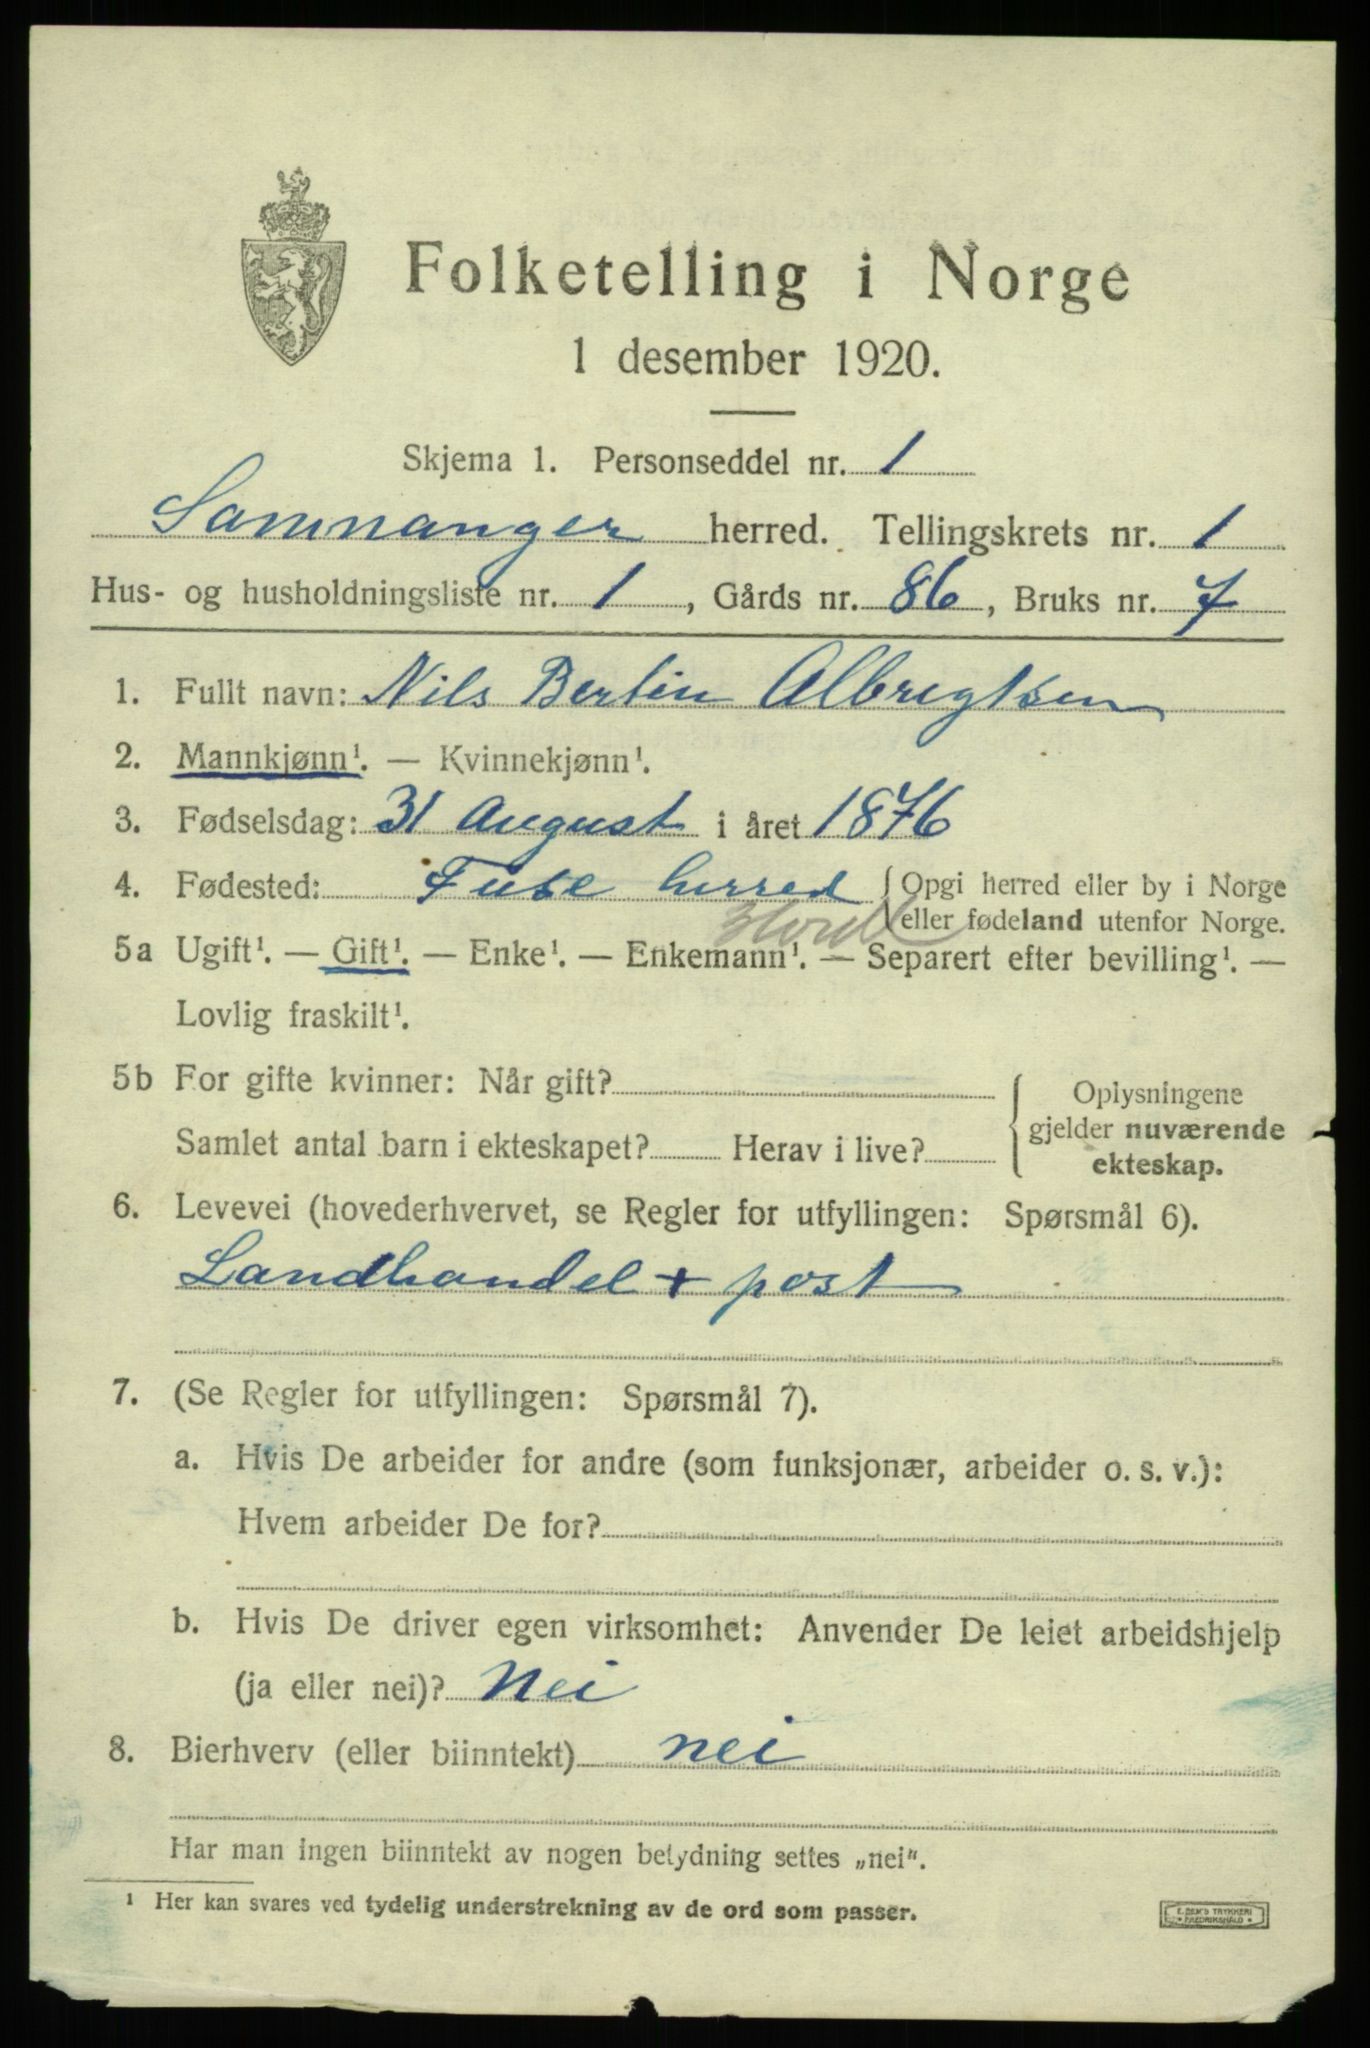 Folketelling i Norge
1 desember 1920.
Skjema 1. Personseddel nr. 1
Samnanger herred. Tellingskrets nr. 1
Hus- og husholdningsliste nr. 1, Gårds nr. 86, Bruks nr. 7
1. Fullt navn: Nils Bertin Albregtsen
2. Mannkjønn¹. — Kvinnekjønn¹.
3. Fødselsdag: 31 August i året 1876
4. Fødested: Fuse herred {Opgi herred eller by i Norge
eller fødeland utenfor Norge.
Hord
5a Ugift¹. — Gift¹. — Enke¹. — Enkemann¹. — Separert efter bevilling¹. —
Lovlig fraskilt¹.
5b For gifte kvinner: Når gift?
Samlet antal barn i ekteskapet? Herav i live?
{Oplysningene
gjelder nuværende
ekteskap.
6. Levevei (hovederhvervet, se Regler for utfyllingen: Spørsmål 6).
Landhandel + post
7. (Se Regler for utfyllingen: Spørsmål 7).
a. Hvis De arbeider for andre (som funksjonær, arbeider o. s. v.):
Hvem arbeider De for?
b. Hvis De driver egen virksomhet: Anvender De leiet arbeidshjelp
(ja eller nei)? Nei
8. Bierhverv (eller biinntekt) nei
Har man ingen biinntekt av nogen betydning settes „nei".
¹ Her kan svares ved tydelig understrekning av de ord som passer.
TRYKKERI
FREDRIKSHALD